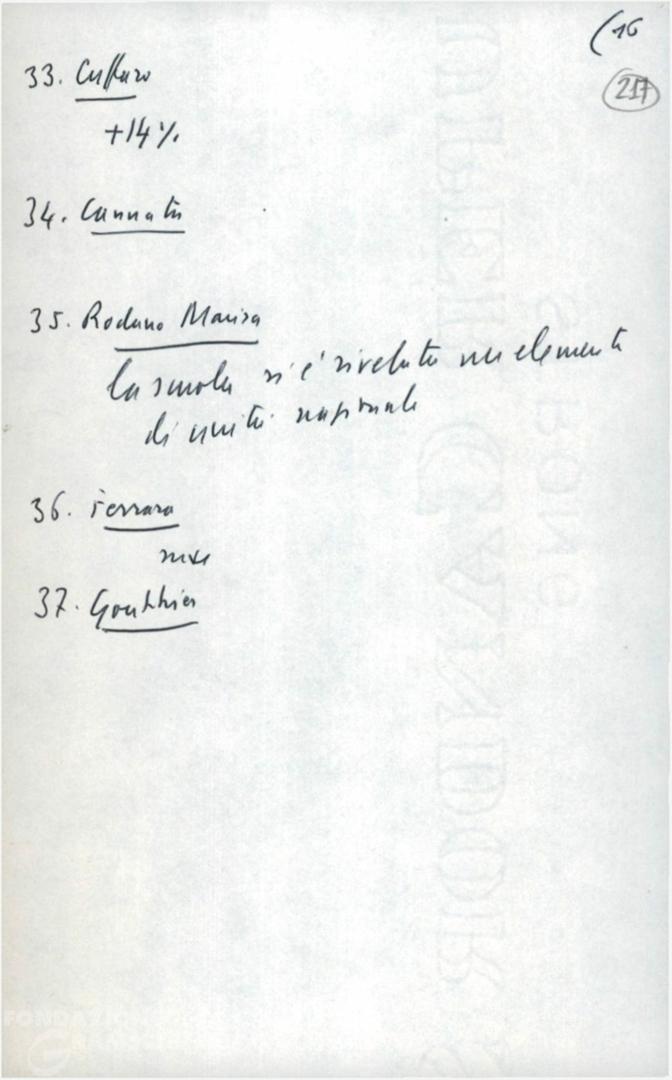 (16
217
33. Cuffaro
+14%
34. Cannata
35. Rodano Marisa
la scuola si è rivelata un elemento
di unità nazionale
36. Ferrara
37. Gouthier
FONDAZIONE
GRAMSCI